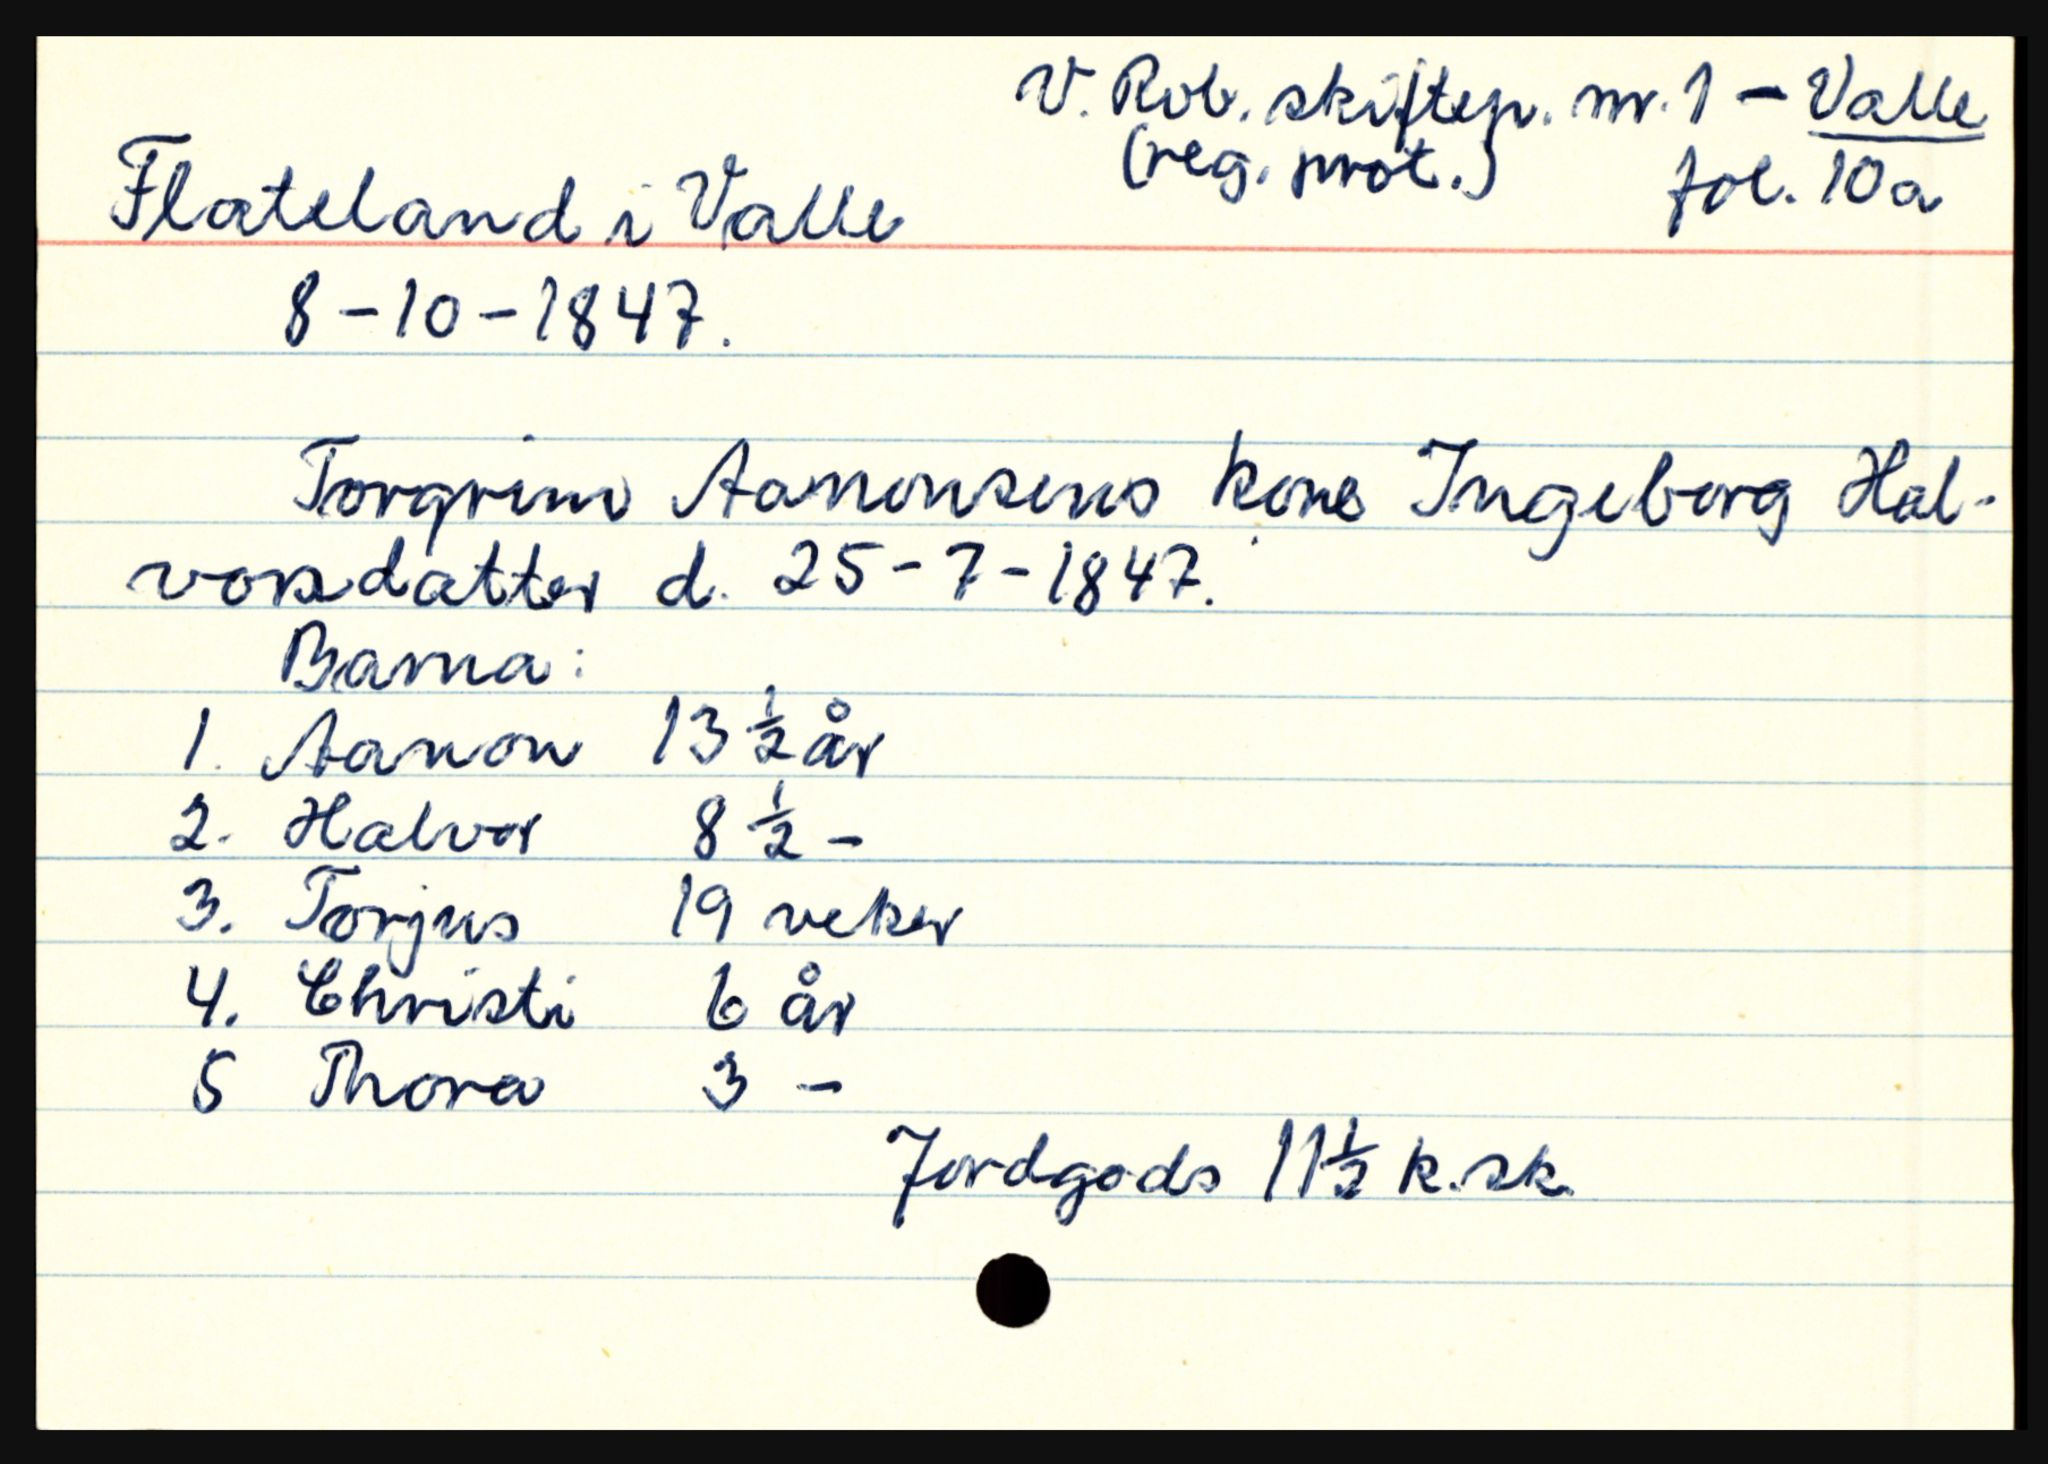 V. Rob. skiftep. nr. 1 - Valle
(reg. prot.) fol. 10a
Flateland i Valle
8-10-1847.
Torgrim Aanonsens kone Ingeborg Hal-
vorsdatter d. 25-7-1847.
Barna:
1. Aanon 13 1/2 år
2. Halvor 8 1/2 -
3. Torjus 19 veker
4. Christi 6 år
5 Thora 3 -
Jordgods 11 1/2 k.sk.